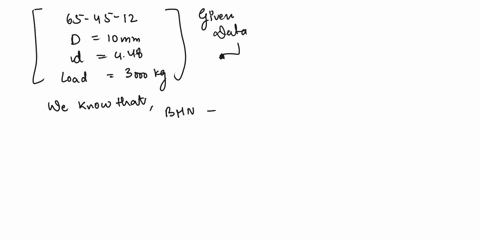 65-45-12
D = 10mm
d = 4.48
Load = 3000 kg
Given
Data
We know that, BHN =